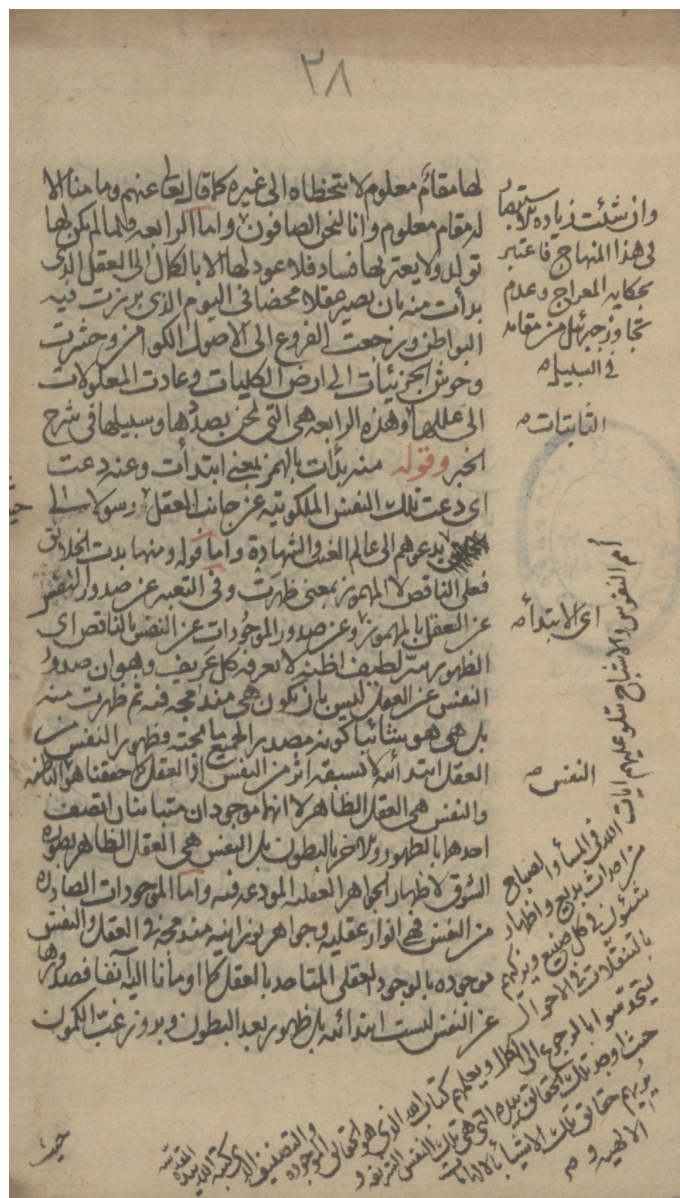 ٣٨
لها مقام معلوم لا تتخطاه الى غيره كما قال تعا عنهم وما منا الا
له مقام معلوم وانا لنحن الصافون واما الرابعة فلما لم يكن لها
تولد ولا يعتر بها فساد فلا عود لها الا بالكمال الى العقل الذى
بدأت منه بان يصير عقلا محضا فى اليوم الذى برزت فيه
البواطن ورجعت الفروع الى الاصول الكوامن وحشرت
وحوش الجزئيات الى ارض الكليات وعادت المعلولات
الى عللها وهذه الرابعة هى التى نحن بصددها وسبيلها فى شرح
الخبر وقوله منه بدأت بالهمز بمعنى ابتدأت وعنه دعت
اى دعت تلك النفس الملكوتيه عن جانب العقل رسولا الى
يدعوهم الى عالم الغيب والشهادة واما قوله ومنها بدت الخلائق
فعلى الناقص لا المهموز بمعنى ظهرت وفى التعبير عن صدور النفس
عن العقل بالمهموز وعن صدور الموجودات عن النفس بالناقص اى
الظهور سر لطيف اظنه لا يعرفه كل عريف وهو ان صدور
النفس عن العقل ليس بان يكون هى مندمجه فيه ثم ظهرت منه
بل هى هو بشأنيا كونه مصدر الجميع ما تحته وظهور النفس من
العقل ابتدائه لا تسبقه اثر من النفس اذ العقل كما حققنا هو الباطنه
والنفس هى العقل الظاهر لا انهما موجودان متباينان اتصف
احدها بالظهور والاخر بالبطون بل النفس هى العقل الظاهر بطوره
الشوق لاظهار الجواهر العقليه المودعه فيه واما الموجودات الصادره
من النفس فهى انوار عقليه وجواهر نورانيه مندمجه فى العقل والنفس
موجوده بالوجود العقلى المقاصد بالعقل كما اومأنا اليه آنفا فصدورها
عن النفس ليست ابتدائيه بل ظهور بعد البطون وبروز غب الكمون
وان شئت زياده
فى هذا المنهاج فاعتبر
بحكاية المعراج وعدم
تجاوز جبرئيل من مقامه
فى السبيل
الثابتات
اى الابتدأ
النفس
امم النفوس والاشباح يتلو عليهم ايات
الله فى المسأ والصباح
من احداث بديع واظهار
شئون فى كل صنيع ويزكيهم
بالتنقلات فى الاحوال
ليتقدسوا بالرجوع الى الكمال ويعلمهم كتاب الله الذى هو الحقائق الموجوده والتصنيف الذى كتبه الله بيده
حيث اوجد تلك الحقائق بيده التى هى تلك النفس الشريفه و
يريهم حقائق تلك الاشيأ بالارادات
الالهيه
حيث